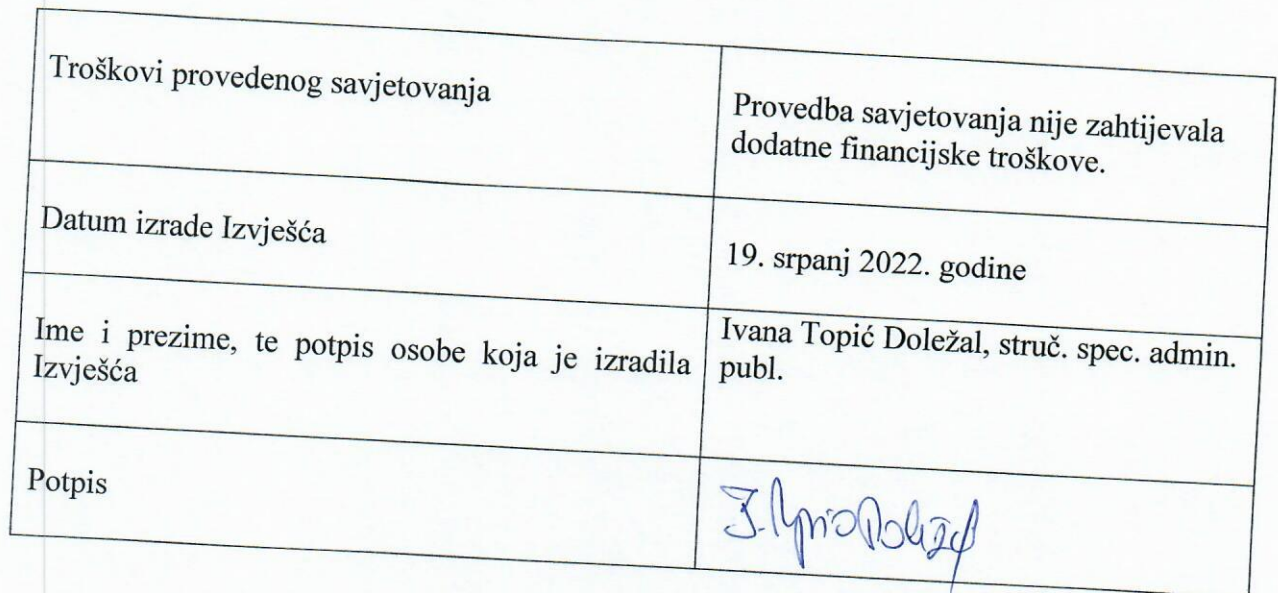 Troškovi provedenog savjetovanja
Provedba savjetovanja nije zahtijevala
dodatne financijske troškove.
Datum izrade Izvješća
19. srpanj 2022. godine
Ime i prezime, te potpis osobe koja je izradila
Izvješća
Ivana Topić Doležal, struč. spec. admin.
publ.
Potpis